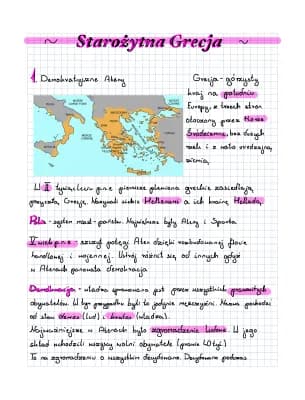 ~ Starożytna Grecja ~
1. Demokratyczne Ateny
Grecja - górzysty
kraj na południu
Europy, z trzech stron
otoczony przez Morze
Śródziemne, bez dużych
rzek i z mało urodzajną
ziemią.
W II tysiącleciu p.n.e. pierwsze plemiona greckie zasiedlają
przyszłą Grecję. Nazywali siebie Hellenami a ich krainę Helladą.
Polis - system miast-państw. Największe były Ateny i Sparta.
V wiek p.n.e. - szczyt potęgi Aten dzięki rozbudowanej flocie
handlowej i wojennej. Ustrój różnił się od innych gdyż
w Atenach panowała demokracja
Demokracja - władza sprawowana jest przez wszystkich prawowitych
obywateli. W tym przypadku byli to jedynie mężczyźni. Nazwa pochodzi
od słow demos (lud) i kratos (władza).
Najważniejsze w Atenach było zgromadzenie ludowe. W jego
skład wchodzili wszyscy wolni obywatele (prawie 40 tyś.)
To na zgromadzeniu o wszystkim decydowano. Decydowano podczas